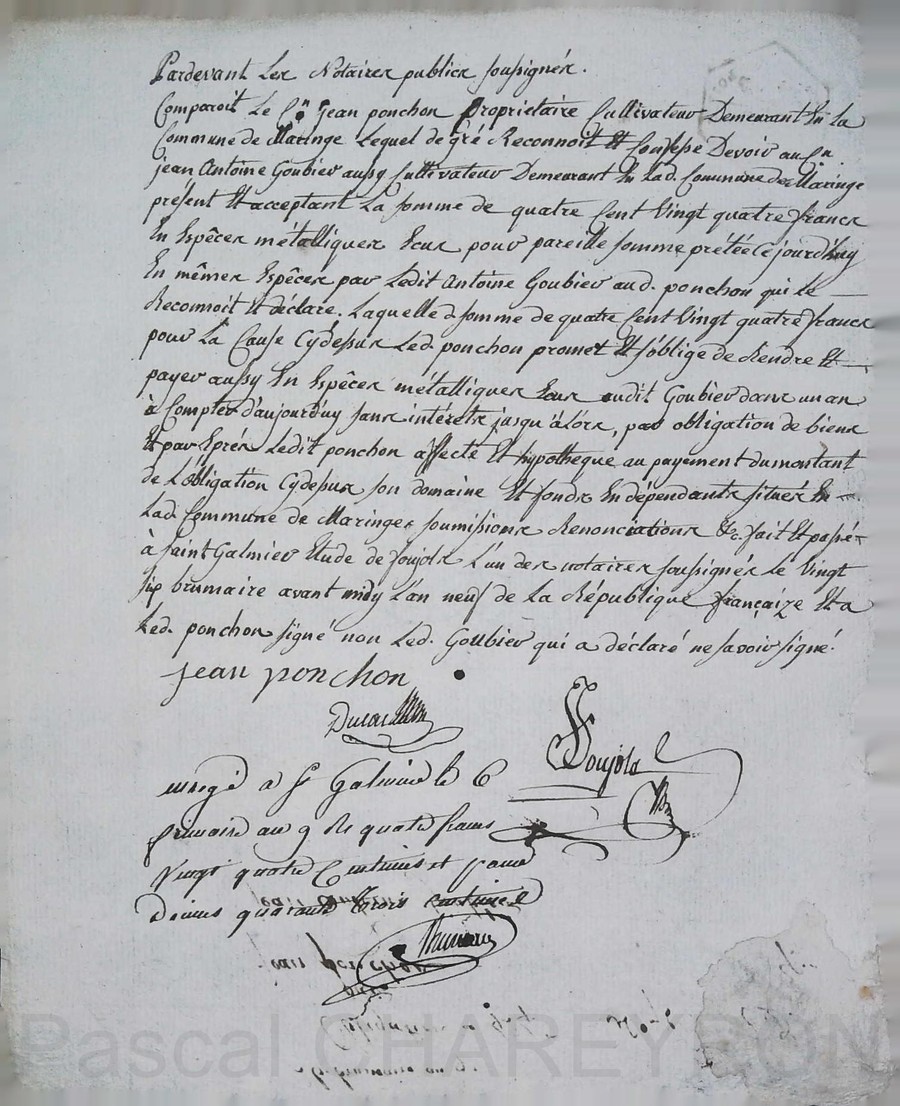 Pardevant Les Notaires publics soussignés.
Comparoit Le C.en Jean ponchon Proprietaire Cultivateur Demeurant En La
Commune de Maringe Lequel de gré Reconnoit Et Confesse Devoir au C.n
jean Antoine Goubier aussy Cultivateur Demeurant En Lad. Commune de Maringe
présent Et acceptant La somme de quatre Cent Vingt quatre francs
En Espêces métalliques Ecus pour pareille somme prétée Cejourd'huy
En mêmes Espêces par Ledit Antoine Goubier aud. ponchon qui Le
Reconnoit Et déclare. Laquelle d. somme de quatre Cent Vingt quatre francs
pour La Cause Cydessus Led. ponchon promet Et s'oblige de Rendre Et
payer aussy En Espêces métalliques Ecus audit Goubier dans un an
à Compter d'aujourd'uy sans intérets jusqu'àlors, par obligation de biens
Et par Exprés Ledit ponchon affecte Et hypotheque au payement du montant
de L'obligation Cydessus son domaine Et fonds En dépendants situés En
Lad. Commune de Maringes soumissions Renonciations &c. fait Et passé
à saint Galmier Etude de Soujols L'un des notaires soussignés Le Vingt
six brumaire avant midy L'an neuf de La République françaize Et a
Led. ponchon signé non Led. Goubier qui a déclaré ne savoir signé.
jean ponchon
Soujols
enregé a St Galmier le 6
frimaire an 9 R quatre francs
Vingt quatre Centimes et pour
Decimes quarante trois centimes
Pascal CHAREYRON